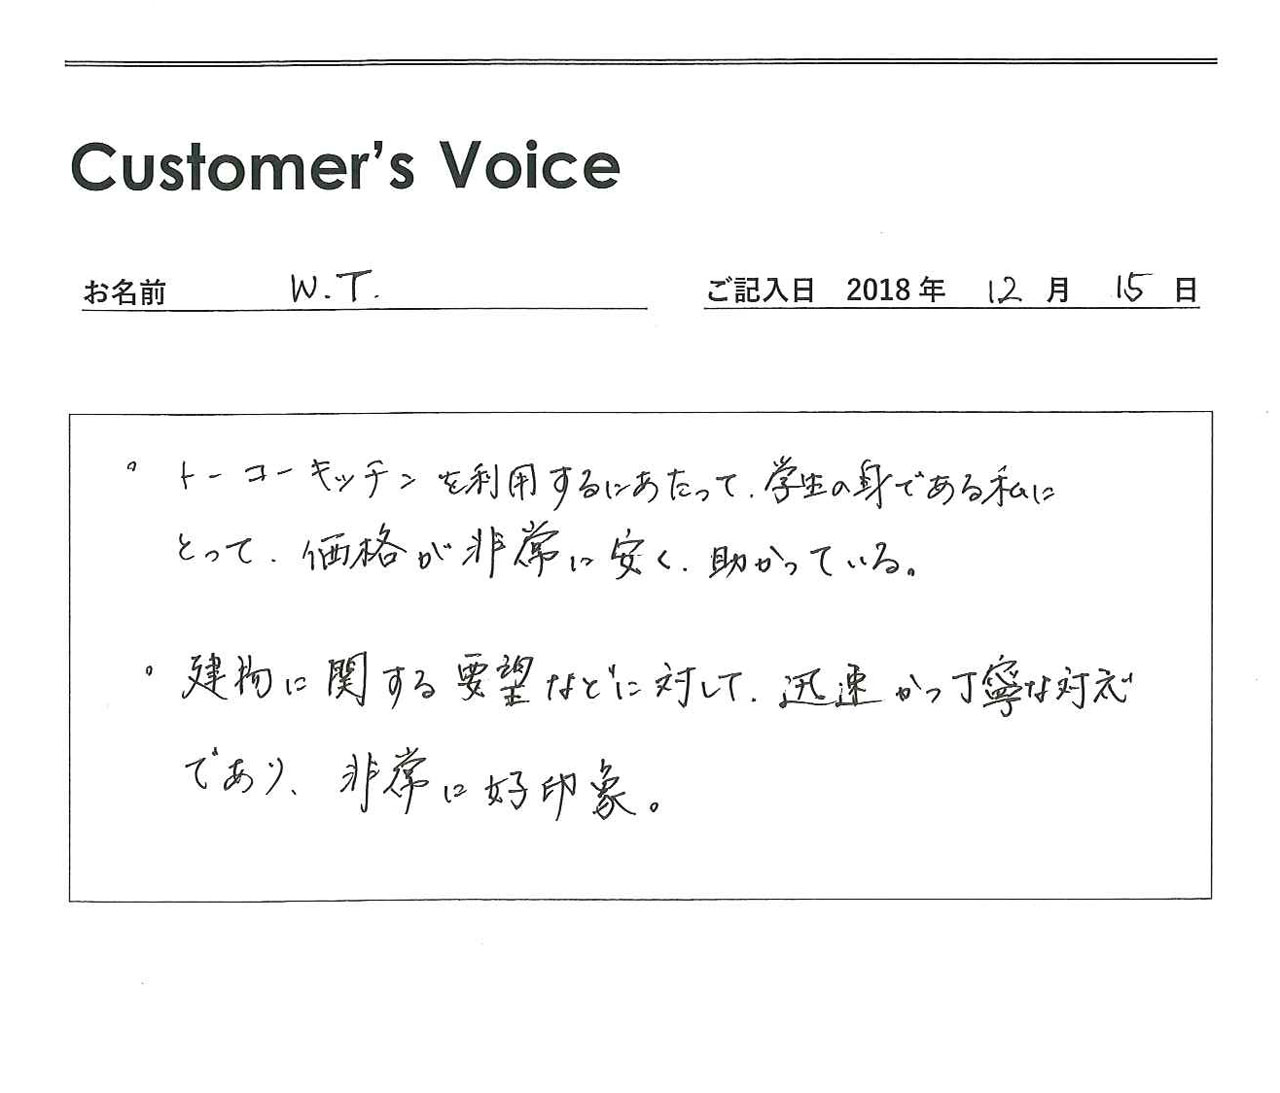 Customer's Voice
お名前 W.T. ご記入日 2018年 12月 15日
。トーコーキッチンを利用するにあたって、学生の身である私に
とって、価格が非常に安く、助かっている。
。建物に関する要望などに対して、迅速かつ丁寧な対応
であり、非常に好印象。